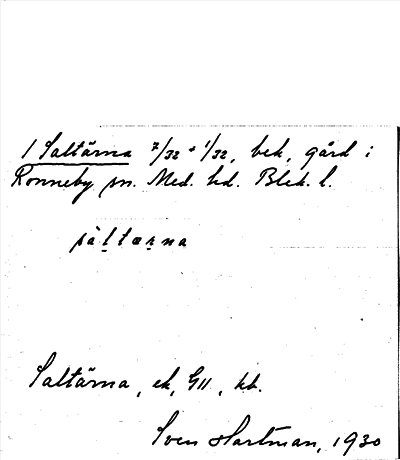 1 Saltärna 7/32 + 1/32, bek. gård i
Ronneby sn. Med. hd. Blek. l.
sàḷtæṛna
Saltärna, ek, G11, kb.
Sven Hartman, 1930